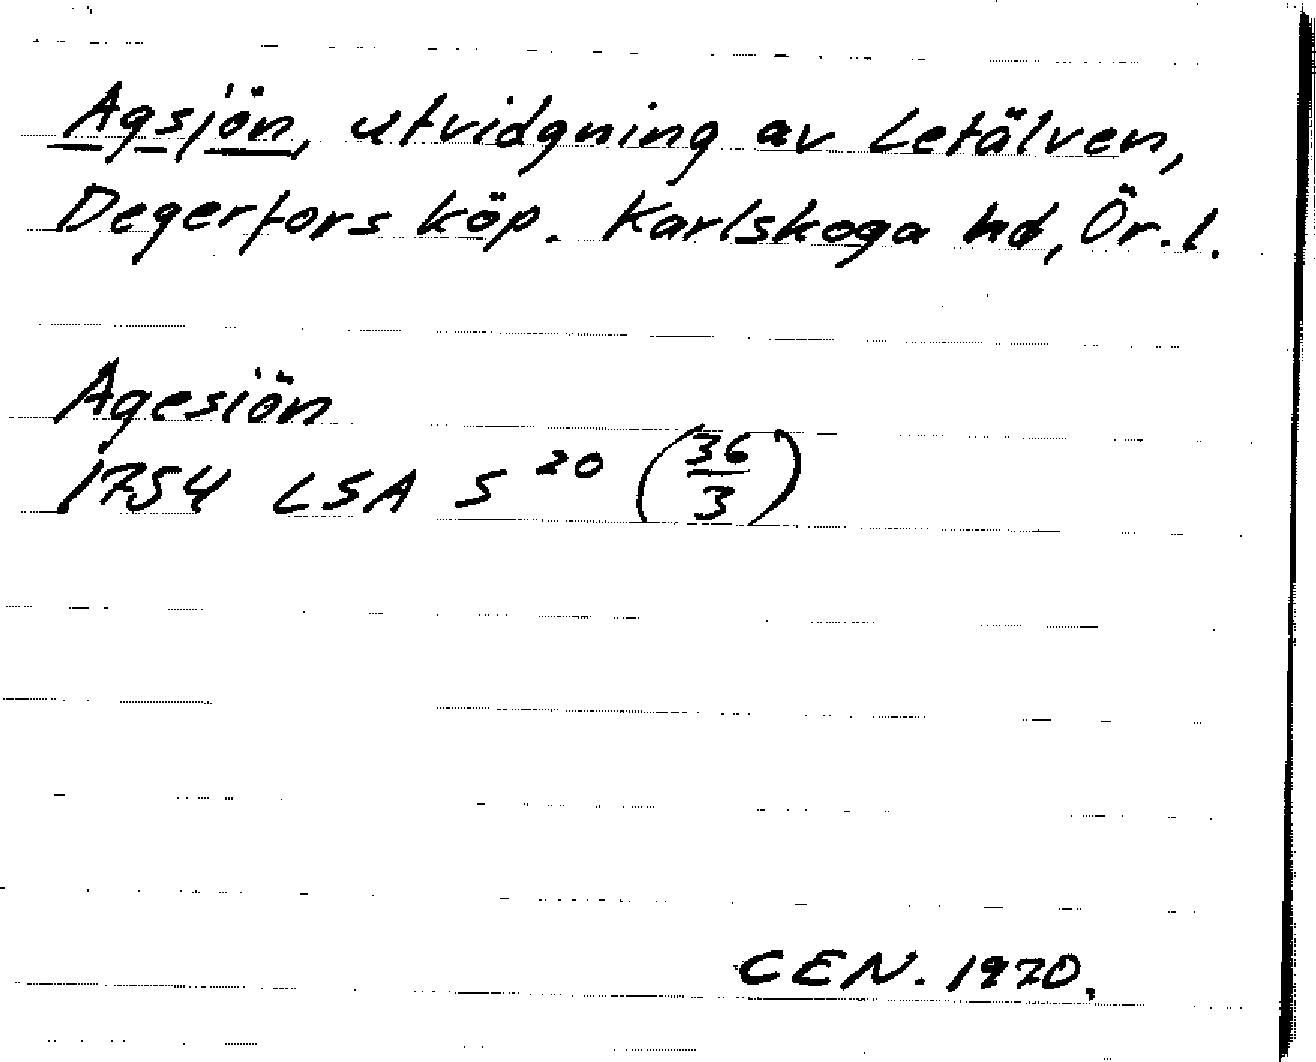 Agsjön, utvidgning av Letälven,
Degerfors köp. Karlskoga hd, Ör.l.
Agesiön
1754 LSA S 20 (36/3)
CEN. 1970.